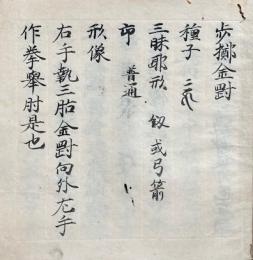 歩擲金剛
種子
三昧耶形 釼 或弓箭
印 普通
形像
右手執三胋金剛向外左手
作拳舉肘是也